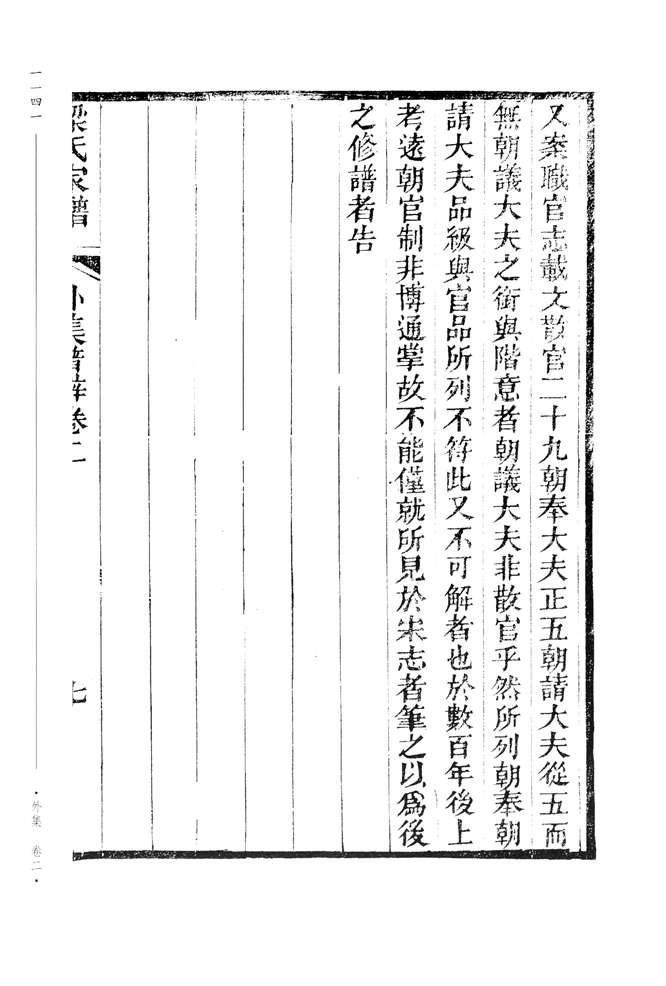 又案職官志載文散官二十九朝奉大夫正五朝請大夫從五而
無朝議大夫之銜與階意者朝議大夫非散官乎然所列朝奉朝
請大夫品級與官品所列不符此又不可解者也於數百年後上
考遠朝官制非博通掌故不能僅就所見於宋志者筆之以爲後
之修譜者告
氏家譜
外集譜辨卷二
七
一一四一
·外集 卷二·